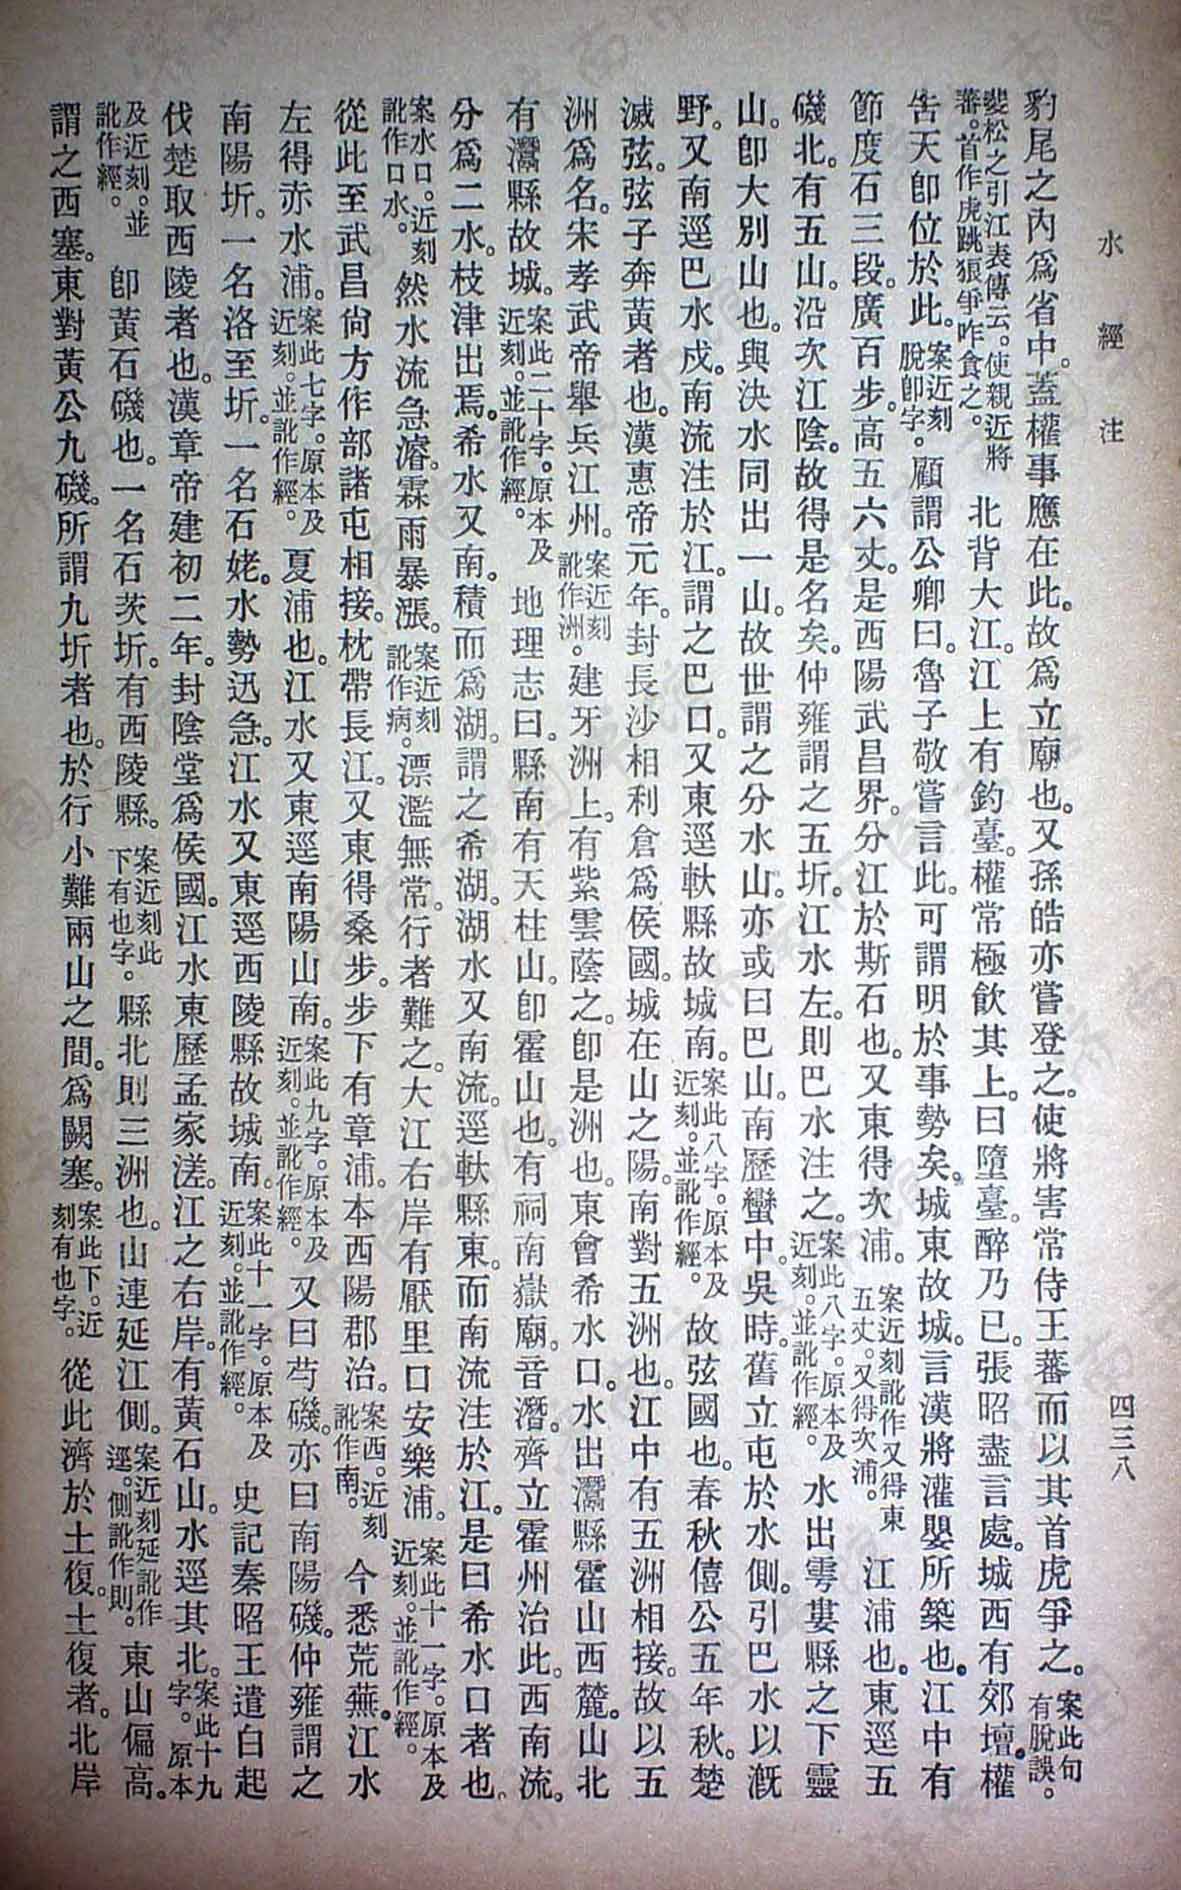 水經注
四三八
豹尾之內爲省中。蓋權事應在此。故爲立廟也。又孫皓亦嘗登之。使將害常侍王蕃而以其首虎爭之。案此句有脫誤。
裴松之引江表傳云。使親近將蕃。首作虎跳狼爭咋食之。北背大江。江上有釣臺。權常極飲其上。曰墮臺。醉乃已。張昭盡言處。城西有郊壇。權
告天卽位於此。案近刻脫卽字。顧謂公卿曰。魯子敬嘗言此。可謂明於事勢矣。城東故城。言漢將灌嬰所築也。江中有
節度石三段。廣百步。高五六丈。是西陽武昌界。分江於斯石也。又東得次浦。案近刻訛作又得東五丈。又得次浦。江浦也。東逕五
磯北。有五山。沿次江陰。故得是名矣。仲雍謂之五圻。江水左。則巴水注之。案此八字。原本及近刻。並訛作經。水出雩婁縣之下靈
山。卽大別山也。與決水同出一山。故世謂之分水山。亦或曰巴山。南歷蠻中。吳時。舊立屯於水側。引巴水以漑
野。又南逕巴水戍。南流注於江。謂之巴口。又東逕軑縣故城南。案此八字。原本及近刻。並訛作經。故弦國也。春秋僖公五年秋。楚
滅弦。弦子奔黃者也。漢惠帝元年。封長沙相利倉爲侯國。城在山之陽。南對五洲也。江中有五洲相接。故以五
洲爲名。宋孝武帝舉兵江州。案近刻訛作洲。建牙洲上。有紫雲蔭之。卽是洲也。東會希水口。水出灊縣霍山西麓。山北
有灊縣故城。案此二十字。原本及近刻。並訛作經。地理志曰。縣南有天柱山。卽霍山也。有祠南嶽廟。音潛。齊立霍州治此。西南流。
分爲二水。枝津出焉。希水又南。積而爲湖。謂之希湖。湖水又南流。逕軑縣東。而南流注於江。是曰希水口者也。
案水口。近刻訛作口水。然水流急濬。霖雨暴漲。案近刻訛作病。漂濫無常。行者難之。大江右岸有厭里口安樂浦。案此十一字。原本及近刻。並訛作經。
從此至武昌尙方作部諸屯相接。枕帶長江。又東得桑步。步下有章浦。本西陽郡治。案西。近刻訛作南。今悉荒蕪。江水
左得赤水浦。案此七字。原本及近刻。並訛作經。夏浦也。江水又東逕南陽山南。案此九字。原本及近刻。並訛作經。又曰芍磯。亦曰南陽磯。仲雍謂之
南陽圻。一名洛至圻。一名石姥。水勢迅急。江水又東逕西陵縣故城南。案此十一字。原本及近刻。並訛作經。史記秦昭王遣白起
伐楚取西陵者也。漢章帝建初二年。封陰堂爲侯國。江水東歷孟家溠。江之右岸。有黃石山。水逕其北。案此十九字。原本
及近刻。並訛作經。卽黃石磯也。一名石茨圻。有西陵縣。案近刻此下有也字。縣北則三洲也。山連延江側。案近刻延訛作逕。側訛作則。東山偏高。
謂之西塞。東對黃公九磯。所謂九圻者也。於行小難兩山之間。爲闕塞。案此下。近刻有也字。從此濟於土復。土復者。北岸